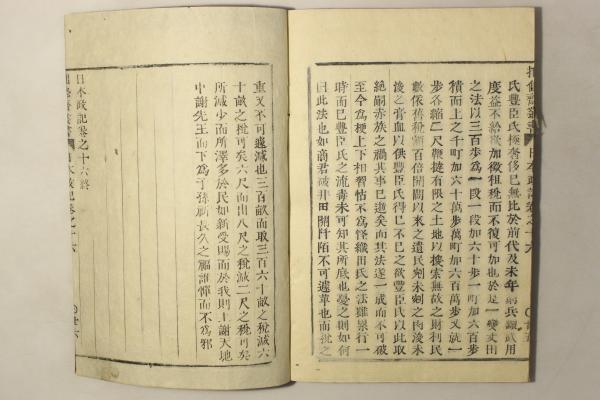 氏豐臣氏極奢侈已無比於前代及末年朝兵頭武用
度益不給欲加徵租稅而不復可加也於是一變丈田
之法以三百步爲一段一段加六十步一町加六百步
積而上之千町加六十萬步萬町加六百萬步又就一
步各縮二尺鞭撻有限之土地以搜索無敵之財利民
數依舊稅額百倍開闢以來之遺民剜未剜之肉浚未
浚之膏血以供豐臣氏得已不已之欲豐臣氏以此取
絕嗣赤族之禍其事已逝矣而其法遂一成而不可破
至今爲梗上下相習恬不爲怪織田氏之法雖暴行一
時而已豐臣氏之流毒未可知其所底也憂之則如何
曰此法也如商君破井田開阡陌不可遽革也而稅之
重又不可遽減也三百畝而取三百六十畝之稅減六
十畝之稅可矣六尺而出八尺之稅減二尺之稅可矣
所減少而所澤多於民如新受賜而於我則上謝天地
中謝先王而下爲子孫祈長久之福誰憚而不爲邪
日本政記卷之十六終